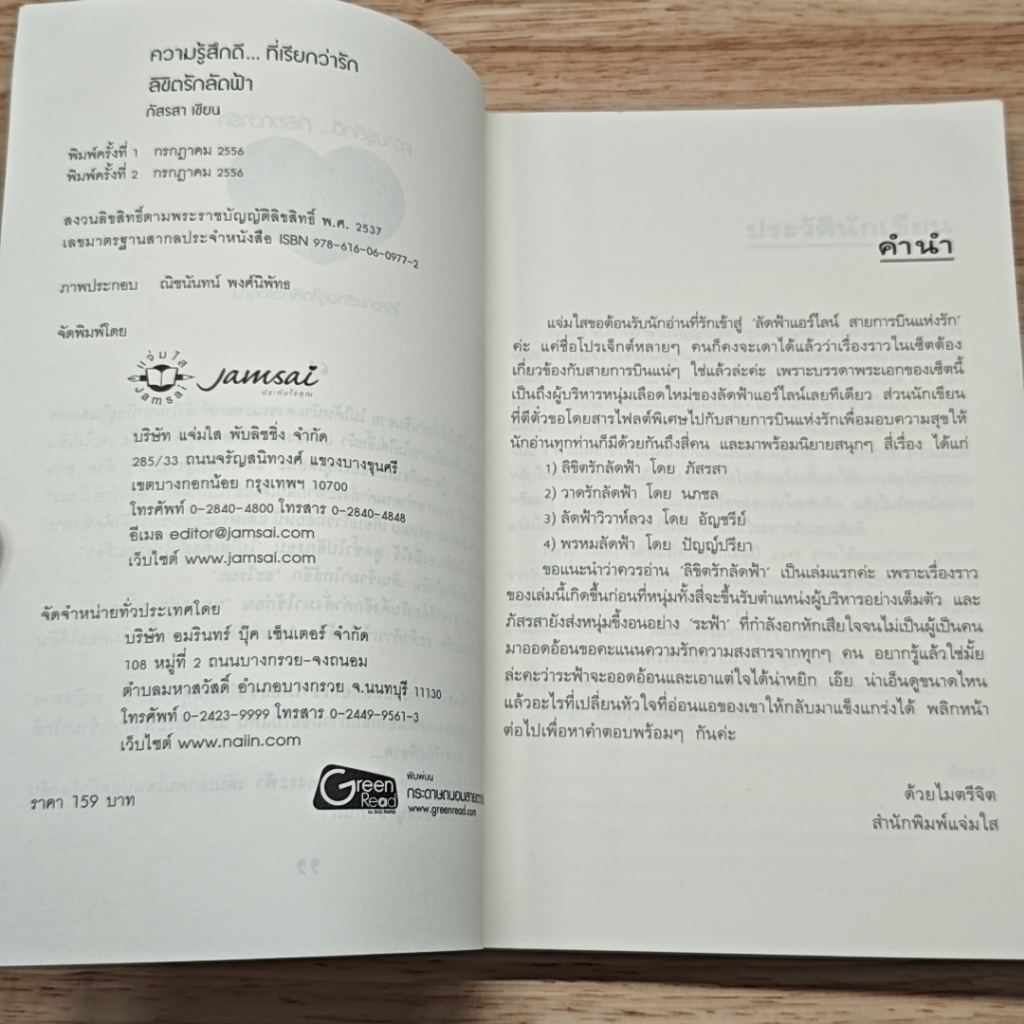 ความรู้สึกดี... ที่เรียกว่ารัก
ลิขิตรักลัดฟ้า
ภัสรสา เขียน
พิมพ์ครั้งที่ 1 กรกฎาคม 2556
พิมพ์ครั้งที่ 2 กรกฎาคม 2556
สงวนลิขสิทธิ์ตามพระราชบัญญัติลิขสิทธิ์ พ.ศ. 2537
เลขมาตรฐานสากลประจำหนังสือ ISBN 978-616-06-0977-2
ภาพประกอบ ณิชนันทน์ พงศ์นิพัทธ
จัดพิมพ์โดย
แจ่มใส
Jamsai
Jamsai
ประทับใจคุณ
บริษัท แจ่มใส พับลิชชิ่ง จำกัด
285/33 ถนนจรัญสนิทวงศ์ แขวงบางขุนศรี
เขตบางกอกน้อย กรุงเทพฯ 10700
โทรศัพท์ 0-2840-4800 โทรสาร 0-2840-4848
อีเมล editor@jamsai.com
เว็บไซต์ www.jamsai.com
จัดจำหน่ายทั่วประเทศโดย
บริษัท อมรินทร์ บุ๊ค เซ็นเตอร์ จำกัด
108 หมู่ที่ 2 ถนนบางกรวย-จงถนอม
ตำบลมหาสวัสดิ์ อำเภอบางกรวย จ.นนทบุรี 11130
โทรศัพท์ 0-2423-9999 โทรสาร 0-2449-9561-3
เว็บไซต์ www.naiin.com
ราคา 159 บาท
Green
Read
พิมพ์บน
กระดาษถนอมสายตา
www.greenread.com
คำนำ
แจ่มใสขอต้อนรับนักอ่านที่รักเข้าสู่ 'ลัดฟ้าแอร์ไลน์ สายการบินแห่งรัก'
ค่ะ แค่ชื่อโปรเจ็กต์หลายๆ คนก็คงจะเดาได้แล้วว่าเรื่องราวในเซ็ตต้อง
เกี่ยวข้องกับสายการบินแน่ๆ ใช่แล้วล่ะค่ะ เพราะบรรดาพระเอกของเซ็ตนี้
เป็นถึงผู้บริหารหนุ่มเลือดใหม่ของลัดฟ้าแอร์ไลน์เลยทีเดียว ส่วนนักเขียน
ที่ตีตั๋วขอโดยสารไฟลต์พิเศษไปกับสายการบินแห่งรักเพื่อมอบความสุขให้
นักอ่านทุกท่านก็มีด้วยกันถึงสี่คน และมาพร้อมนิยายสนุกๆ สี่เรื่อง ได้แก่
1) ลิขิตรักลัดฟ้า โดย ภัสรสา
2) วาดรักลัดฟ้า โดย นภชล
3) ลัดฟ้าวิวาห์ลวง โดย อัญชรีย์
4) พรหมลัดฟ้า โดย ปัญญ์ปรียา
ขอแนะนำว่าควรอ่าน 'ลิขิตรักลัดฟ้า' เป็นเล่มแรกค่ะ เพราะเรื่องราว
ของเล่มนี้เกิดขึ้นก่อนที่หนุ่มทั้งสี่จะขึ้นรับตำแหน่งผู้บริหารอย่างเต็มตัว และ
ภัสรสายังส่งหนุ่มขี้งอนอย่าง 'ระฟ้า' ที่กำลังอกหักเสียใจจนไม่เป็นผู้เป็นคน
มาออดอ้อนขอคะแนนความรักความสงสารจากทุกๆ คน อยากรู้แล้วใช่มั้ย
ล่ะคะว่าระฟ้าจะออดอ้อนและเอาแต่ใจได้น่าหยิก เอ๊ย น่าเอ็นดูขนาดไหน
แล้วอะไรที่เปลี่ยนหัวใจที่อ่อนแอของเขาให้กลับมาแข็งแกร่งได้ พลิกหน้า
ต่อไปเพื่อหาคำตอบพร้อมๆ กันค่ะ
ด้วยไมตรีจิต
สำนักพิมพ์แจ่มใส